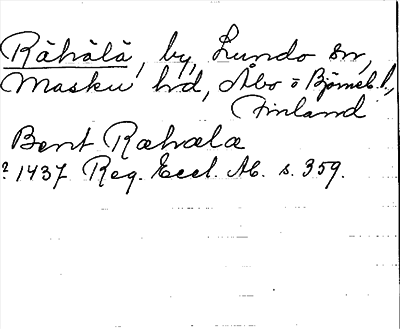 Rähälä, by, Lundo sn,
Masku hd, Åbo o Björneb. l.,
Finland
Bent Rahala
? 1437 Reg. Eccl. Ab. s. 359.